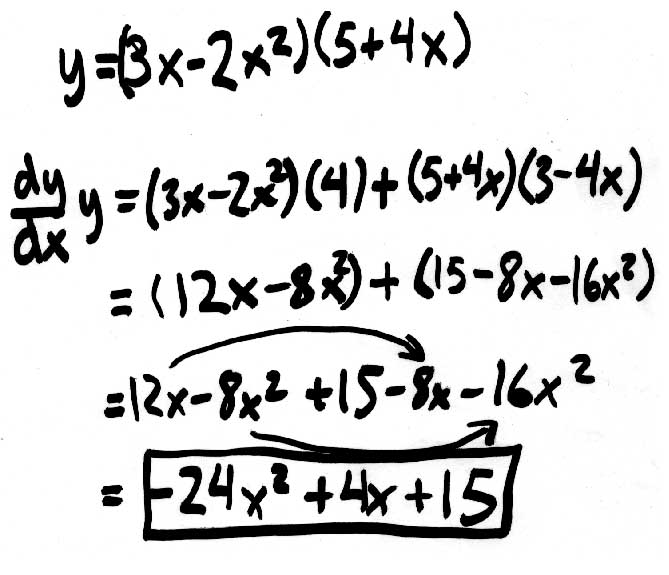 y=(3x-2x²)(5+4x)
dy/dx y=(3x-2x²)(4)+(5+4x)(3-4x)
=(12x-8x²)+(15-8x-16x²)
=12x-8x²+15-8x-16x²
=-24x²+4x+15